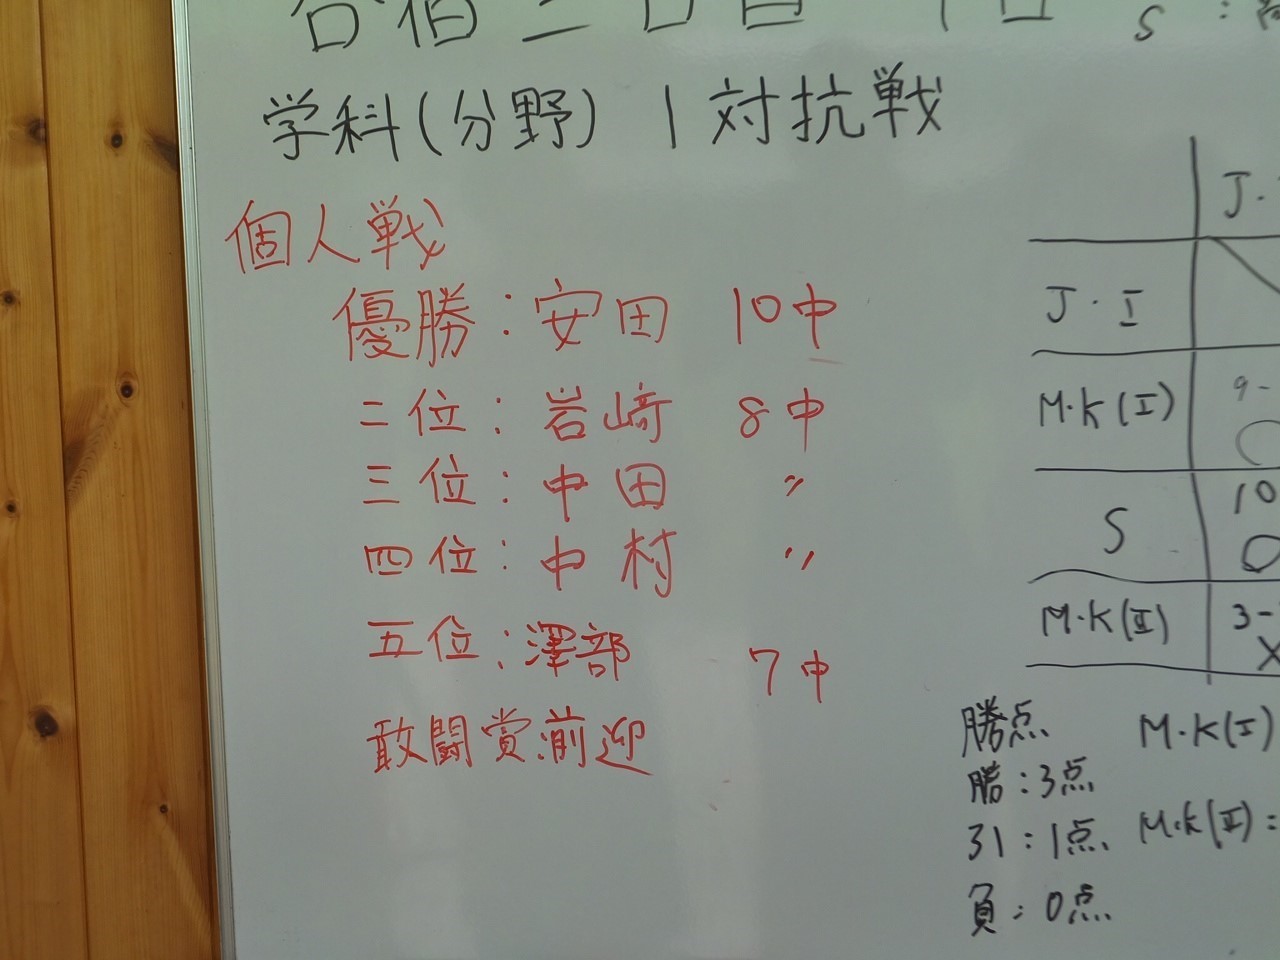 合宿二日目
S :
学科(分野) | 対抗戦
個人戦
優勝:安田 10中
二位:岩﨑 8中
三位:中田 〃
四位:中村 〃
五位:澤部 7中
敢闘賞:前迎
J・
J・I
M・K(I) 9-
S 10
M・K(II) 3-
勝点 M・K(I)
勝:3点
引:1点 M・K(II):
負:0点